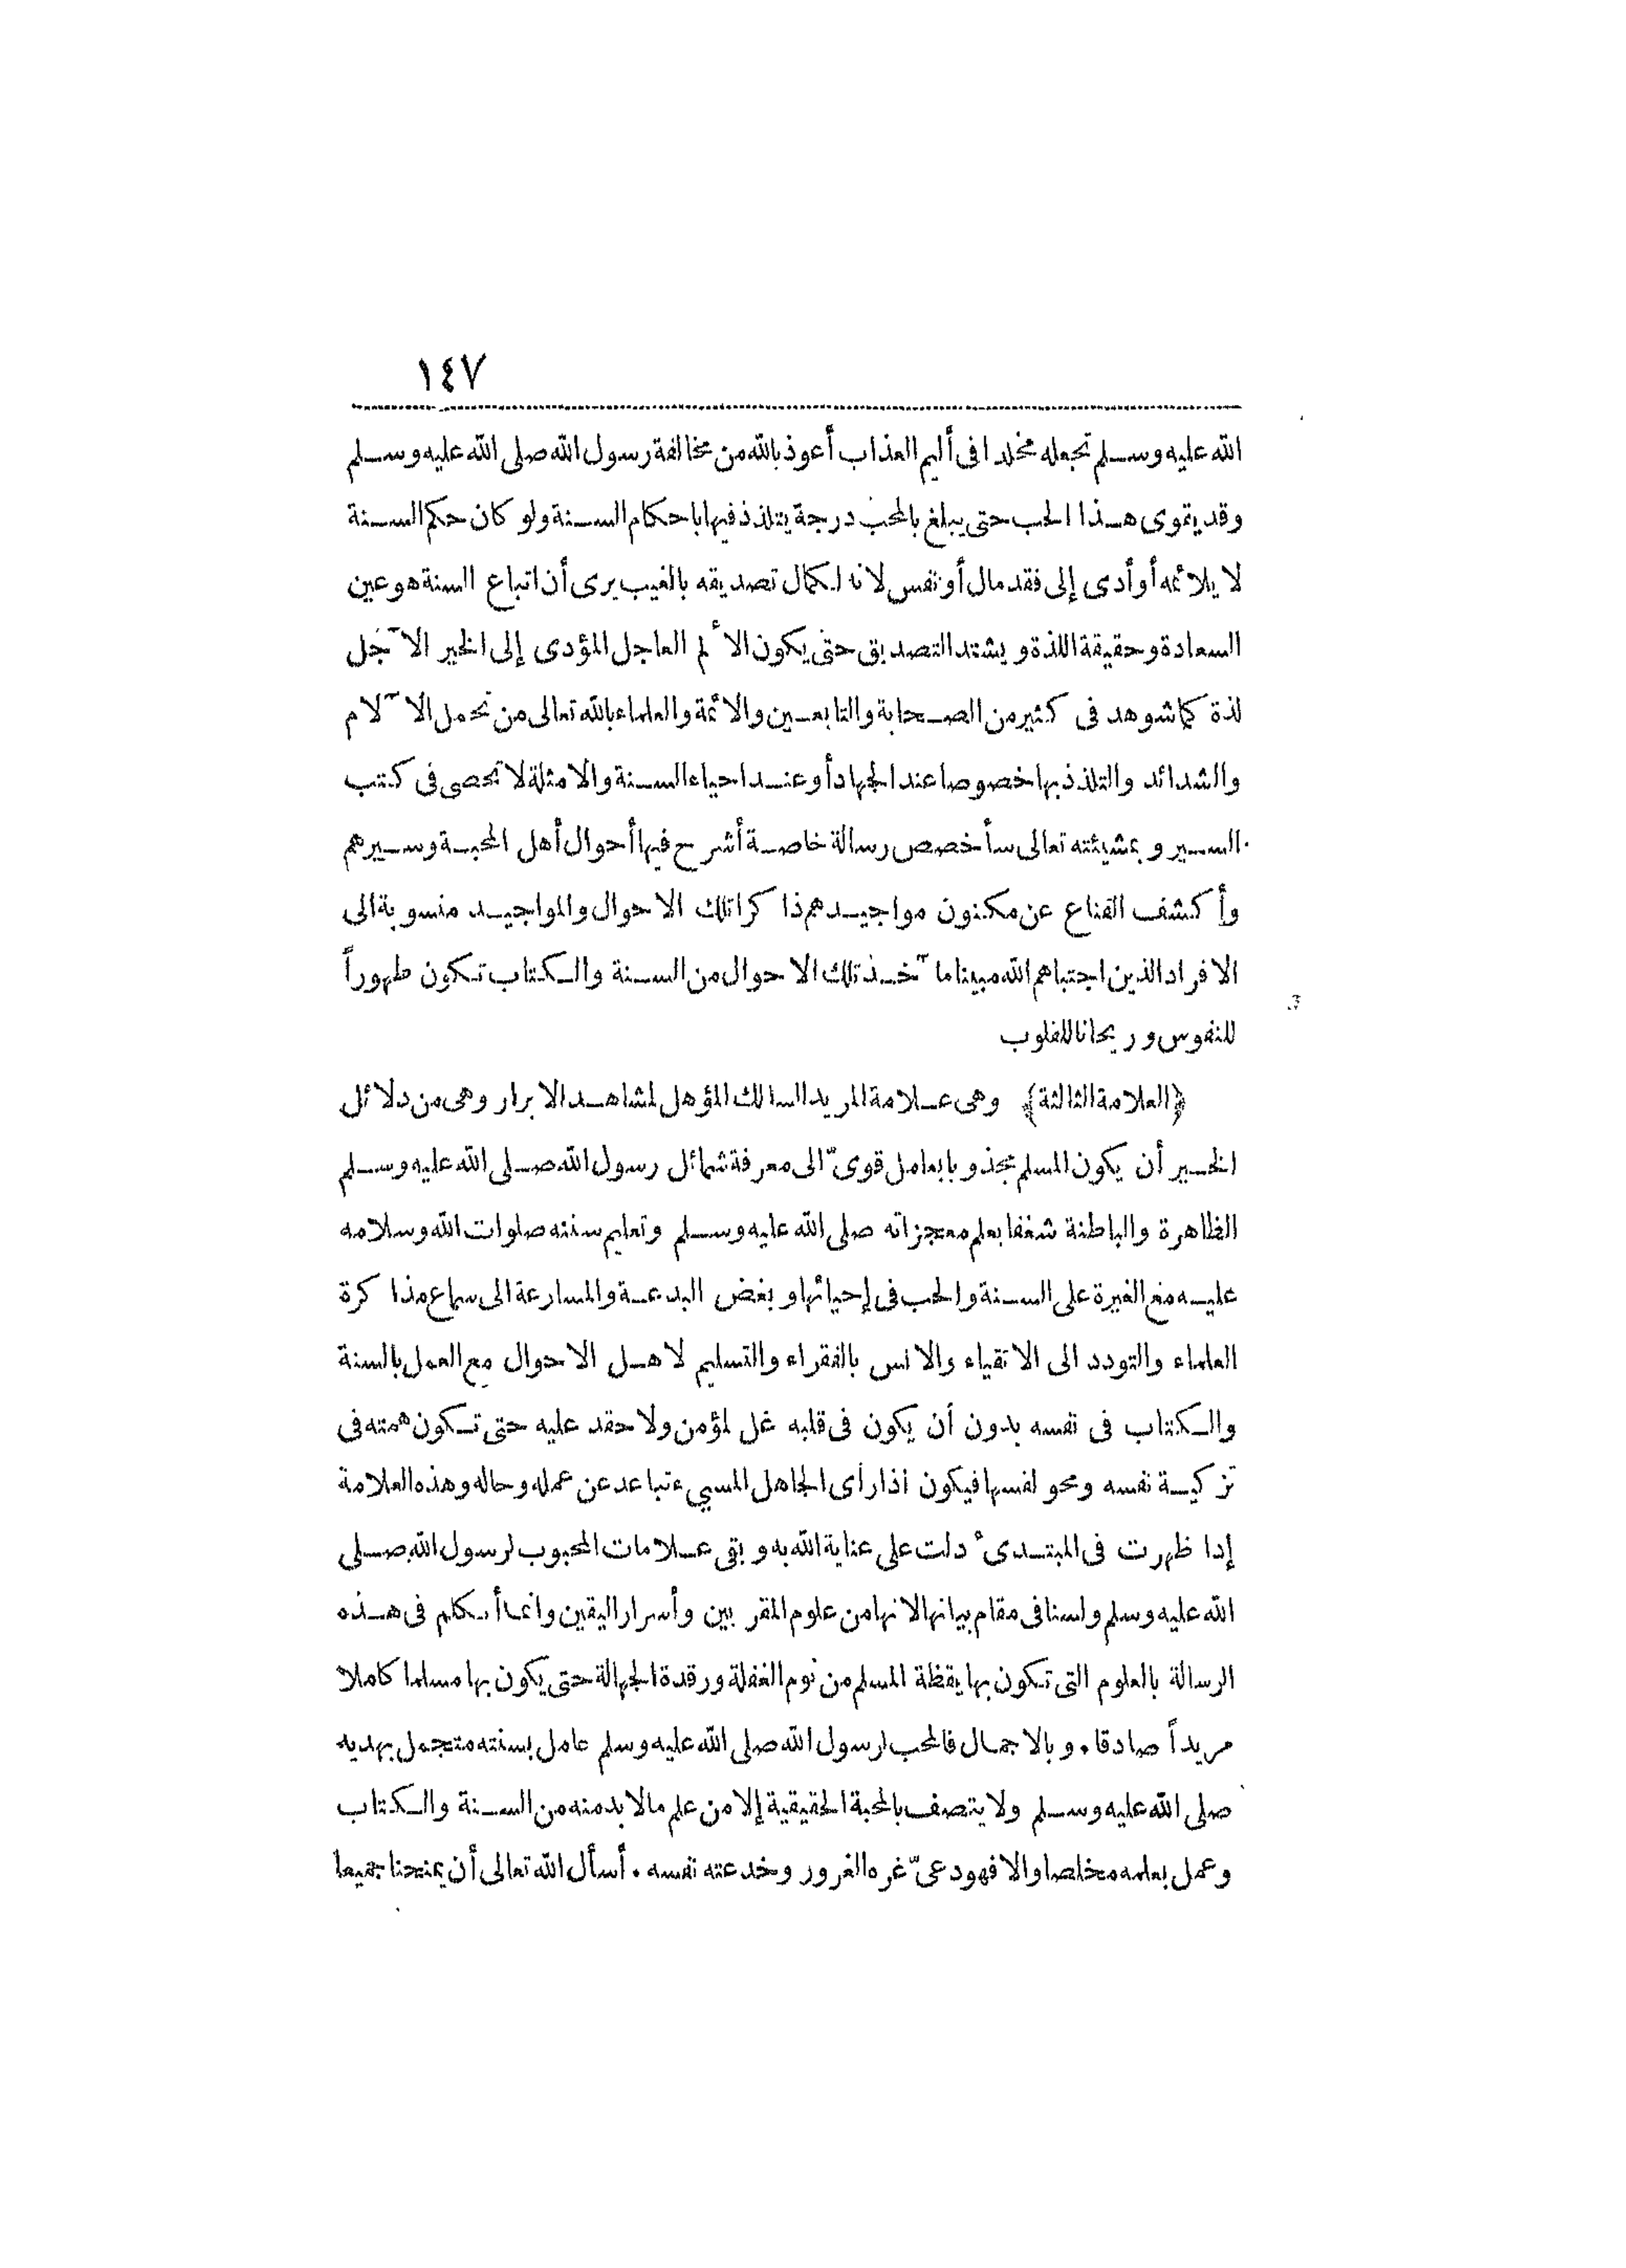 ١٤٧
الله عليه وسلم تجعله مخلدا فى أليم العذاب أعوذ بالله من مخالفة رسول الله صلى الله عليه وسلم
وقد يقوى هذا الحب حتى يبلغ بالمحب درجة يتلذذ فيها باحكام السنة ولو كان حكم السنة
لا يلائمه أو أدى إلى فقد مال أو نفس لانه لكمال تصديقه بالغيب يرى أن اتباع السنة هو عين
السعادة وحقيقة اللذة ويشتد التصديق حتى يكون الألم العاجل المؤدى إلى الخير الآجل
لذة كما شوهد فى كثير من الصحابة والتابعين والائمة والعلماء بالله تعالى من تحمل الآلام
والشدائد والتلذذ بها خصوصا عند الجهاد أو عند احياء السنة والامثلة لا تحصى فى كتب
السير وبمشيئته تعالى سأخصص رسالة خاصة أشرح فيها أحوال أهل المحبة وسيرهم
وأكشف القناع عن مكنون مواجيدهم ذاكرا تلك الاحوال والمواجيد منسوبة الى
الافراد الذين اجتباهم الله مبينا مآخذ تلك الاحوال من السنة والكتاب تكون طهوراً
للنفوس وريحانا للقلوب
﴿العلامة الثالثة﴾ وهى علامة المريد السالك المؤهل لمشاهد الابرار وهى من دلائل
الخير أن يكون المسلم مجذوبا بعامل قوىّ الى معرفة شمائل رسول الله صلى الله عليه وسلم
الظاهرة والباطنة شغفا بعلم معجزاته صلى الله عليه وسلم وتعليم سننه صلوات الله وسلامه
عليه مع الغيرة على السنة والحب فى إحيائها وبغض البدعة والمسارعة الى سماع مذاكرة
العلماء والتودد الى الاتقياء والانس بالفقراء والتسليم لاهل الاحوال مع العمل بالسنة
والكتاب فى نفسه بدون أن يكون فى قلبه غل لمؤمن ولا حقد عليه حتى تكون همته فى
تزكية نفسه ومحو لقسها فيكون اذا رأى الجاهل المسىء تباعد عن عمله وحاله وهذه العلامة
إذا ظهرت فى المبتدىء دلت على عناية الله به وبقى علامات المحبوب لرسول الله صلى
الله عليه وسلم ولسنا فى مقام بيانها لانها من علوم المقربين وأسرار اليقين وانما أتكلم فى هذه
الرسالة بالعلوم التى تكون بها يقظة المسلم من نوم الغفلة ورقدة الجهالة حتى يكون بها مسلما كاملا
مريداً صادقا. وبالاجمال فالمحب لرسول الله صلى الله عليه وسلم عامل بسنته متجمل بهديه
صلى الله عليه وسلم ولا يتصف بالمحبة الحقيقية إلا من علم ما لا بد منه من السنة والكتاب
وعمل بعلمه مخلصا والا فهو دعىّ غره الغرور وخدعته نفسه. أسأل الله تعالى أن يمنحنا جميعا